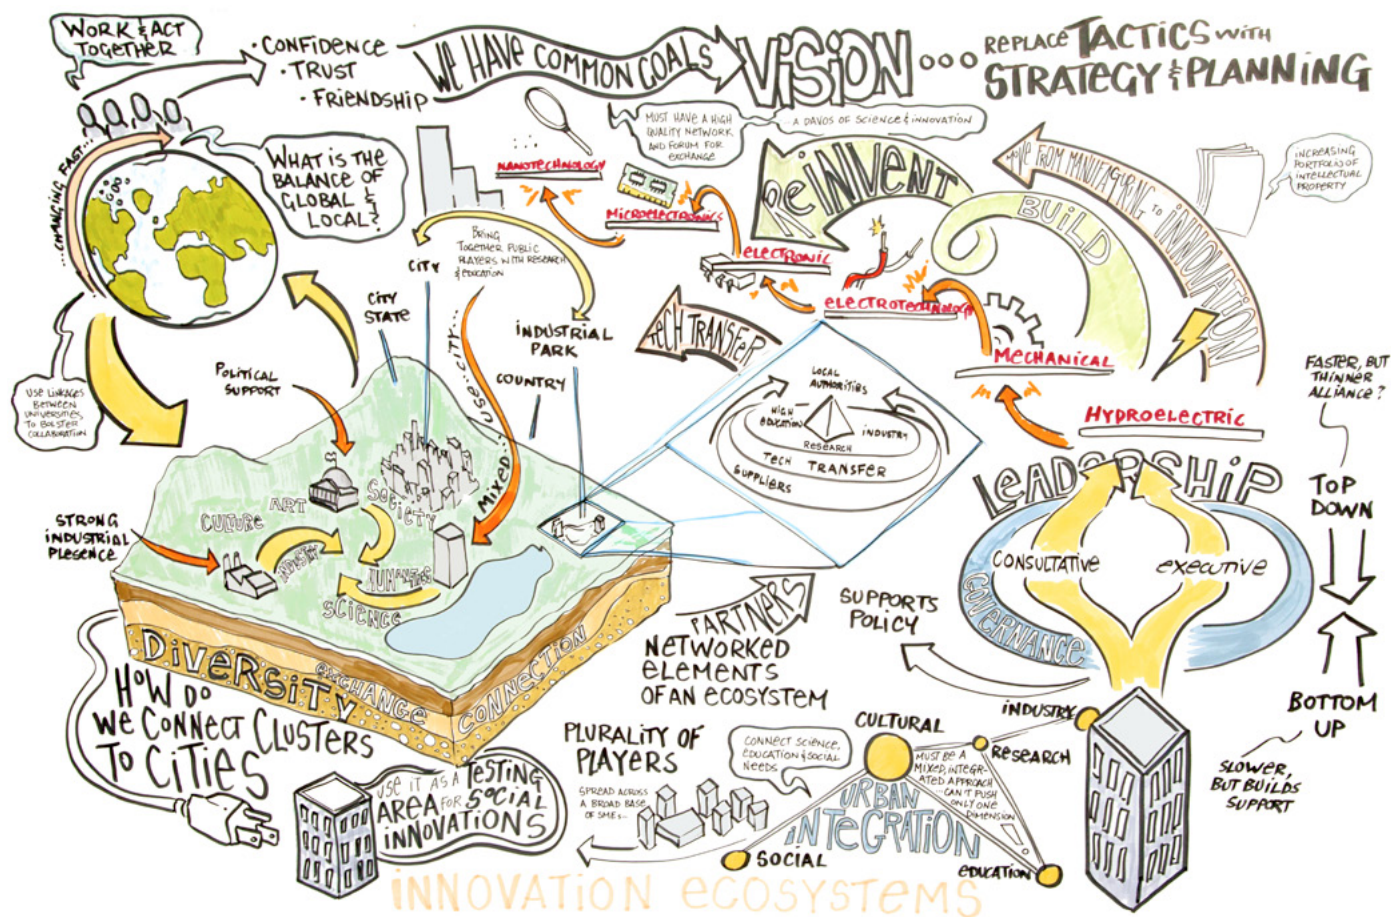 WORK & ACT
TOGETHER
• CONFIDENCE
• TRUST
• FRIENDSHIP
WE HAVE COMMON GOALS
VISION...
REPLACE TACTICS WITH
STRATEGY & PLANNING
...CHANGING FAST...
WHAT IS THE
BALANCE OF
GLOBAL &
LOCAL?
MUST HAVE A HIGH
QUALITY NETWORK
AND FORUM FOR
EXCHANGE
- A DAVOS OF SCIENCE & INNOVATION
NANOTECHNOLOGY
MICROELECTRONICS
ELECTRONIC
ELECTROTECHNOLOGY
MECHANICAL
HYDROELECTRIC
REINVENT
BUILD
MOVE FROM MANUFACTURING TO INNOVATION
INCREASING
PORTFOLIO OF
INTELLECTUAL
PROPERTY
BRING
TOGETHER PUBLIC
PLAYERS WITH RESEARCH
& EDUCATION
CITY
CITY
STATE
INDUSTRIAL
PARK
COUNTRY
MIXED...USE...CITY...
TECH TRANSFER
POLITICAL
SUPPORT
USE LINKAGES
BETWEEN
UNIVERSITIES
TO BOLSTER
COLLABORATION
STRONG
INDUSTRIAL
PLESENCE
CULTURE
ART
SOCIETY
INDUSTRY
HUMANITIES
SCIENCE
DIVERSITY
EXCHANGE
CONNECTION
LOCAL
AUTHORITIES
HIGH
EDUCATION
INDUSTRY
RESEARCH
TECH TRANSFER
SUPPLIERS
FASTER, BUT
THINNER
ALLIANCE?
TOP
DOWN
LEADERSHIP
CONSULTATIVE
EXECUTIVE
GOVERNANCE
BOTTOM
UP
SLOWER,
BUT BUILDS
SUPPORT
SUPPORTS
POLICY
PARTNERS
NETWORKED
ELEMENTS
OF AN ECOSYSTEM
HOW DO
WE CONNECT CLUSTERS
TO CITIES
USE IT AS A TESTING
AREA FOR SOCIAL
INNOVATIONS
PLURALITY OF
PLAYERS
SPREAD ACROSS
A BROAD BASE
OF SMES-
CONNECT SCIENCE,
EDUCATION & SOCIAL
NEEDS
CULTURAL
INDUSTRY
RESEARCH
MUST BE A
MIXED, INTEGR-
ATED APPROACH
- CAN'T PUSH
ONLY ONE
DIMENSION
URBAN
INTEGRATION
SOCIAL
EDUCATION
INNOVATION ECOSYSTEMS